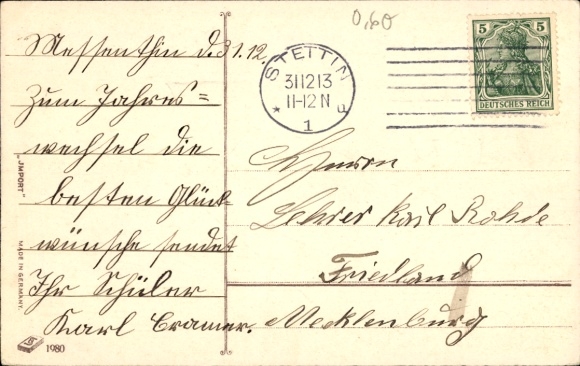 0,60
Messenthin d. 31.12.
Zum Jahres=
wechsel die
besten Glück-
wünsche sendet
Ihr Schüler
Karl Cramer.
STETTIN
31 12 13
11-12 N
* 1 F
5 5
DEUTSCHES REICH
Herrn
Lehrer Karl Rohde
Friedland
Mecklenburg
"IMPORT"
MADE IN GERMANY.
1980